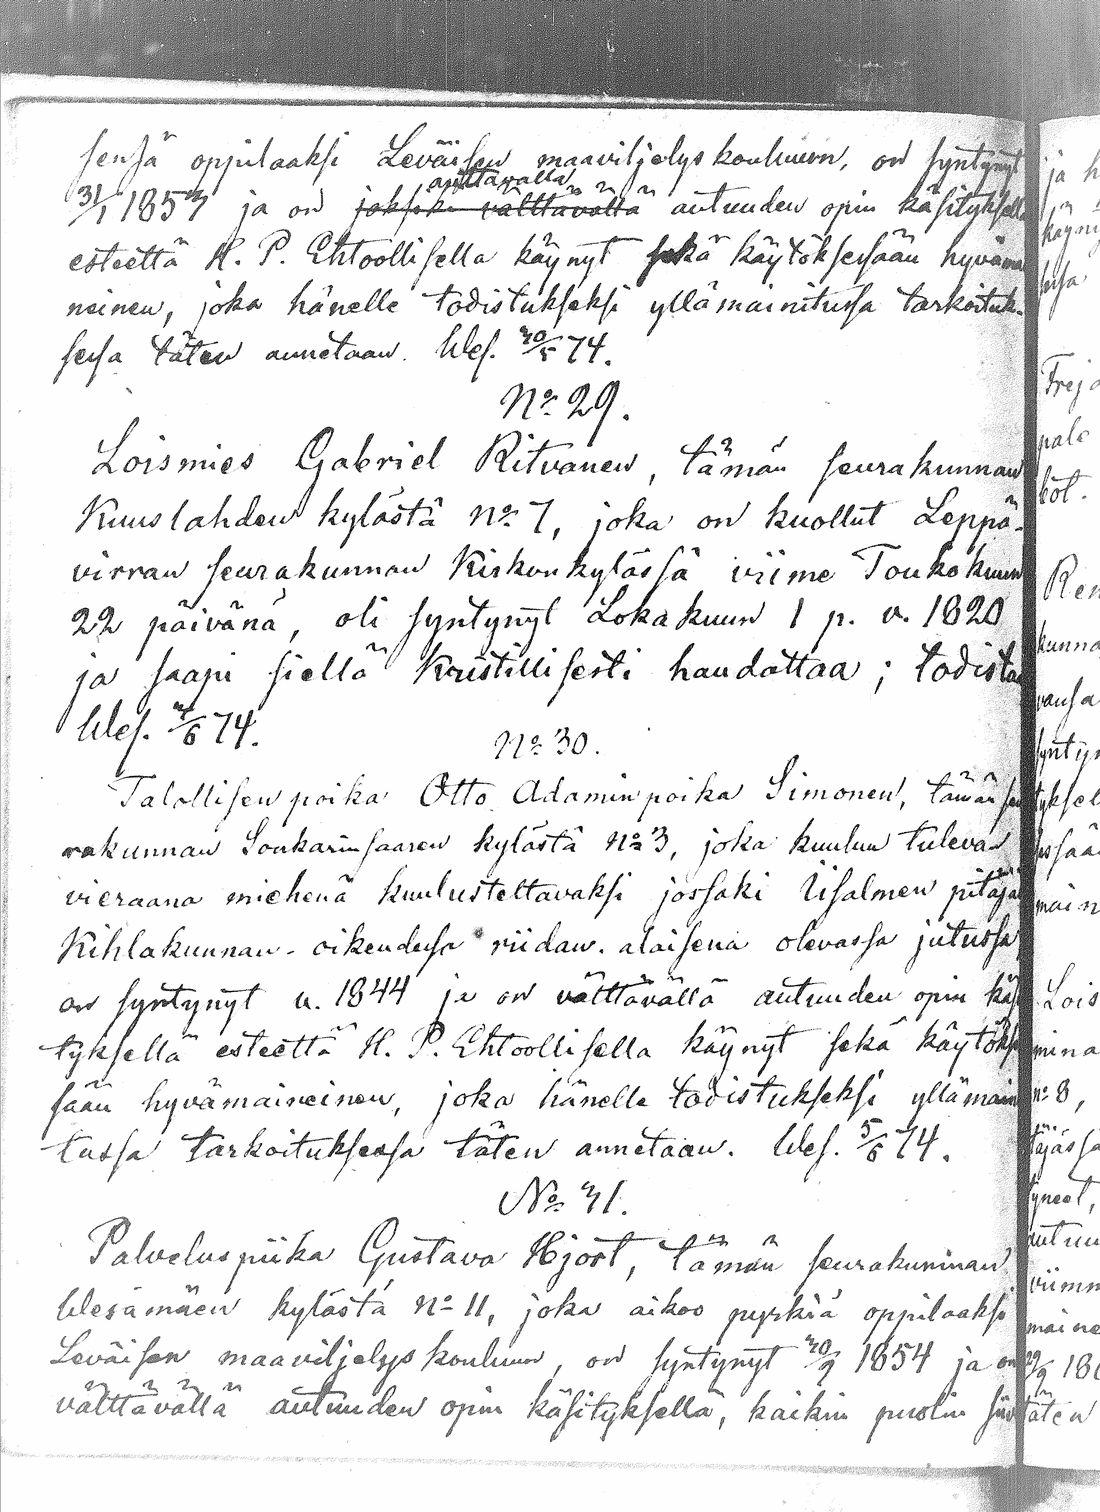 sensä oppilaaksi Leväisen maaviljelyskouluun, on syntynyt
auttavalla
31/1 1857 ja on joksiki välttävällä autuuden opin käsityksellä
esteettä H. P. Ehtoollisella käynyt sekä käytöksessään hyvämai
neinen, joka hänelle todistukseksi yllämainitussa tarkoituk-
sessa täten annetaan. Wes. 30/5 74.
No 29.
Loismies Gabriel Ritvanen, tämän seurakunnan
Kuuslahden kylästä No 7, joka on kuollut Leppä-
virran seurakunnan Kirkonkylässä viime Toukokuun
22 päivänä, oli syntynyt Lokakuun 1 p. v. 1820
ja saapi siellä Kristillisesti haudattaa; todistaa
Wes. 4/6 74.
No 30.
Talollisen poika Otto Adamin poika Simonen, tämän seu
rakunnan Soukarinsaaren kylästä No 3, joka kuuluu tulevan
vieraana miehenä kuulusteltavaksi jossaki Iisalmen pitäjän
Kihlakunnan-oikeudessa riidan-alaisena olevassa jutussa,
on syntynyt v. 1844 ja on välttävällä autuuden opin käsi
tyksellä esteettä H. P. Ehtoollisella käynyt sekä käytökses
sään hyvämaineinen, joka hänelle todistukseksi yllämaini
tussa tarkoituksessa täten annetaan. Wes. 5/6 74.
No 31.
Palveluspiika Gustava Hjort, tämän seurakunnan
Wesamäen kylästä No 11, joka aikoo pyrkiä oppilaaksi
Leväisen maaviljelyskouluun, on syntynyt 30/9 1854 ja on
välttävällä autuuden opin käsityksellä, kaikin puolin siiv